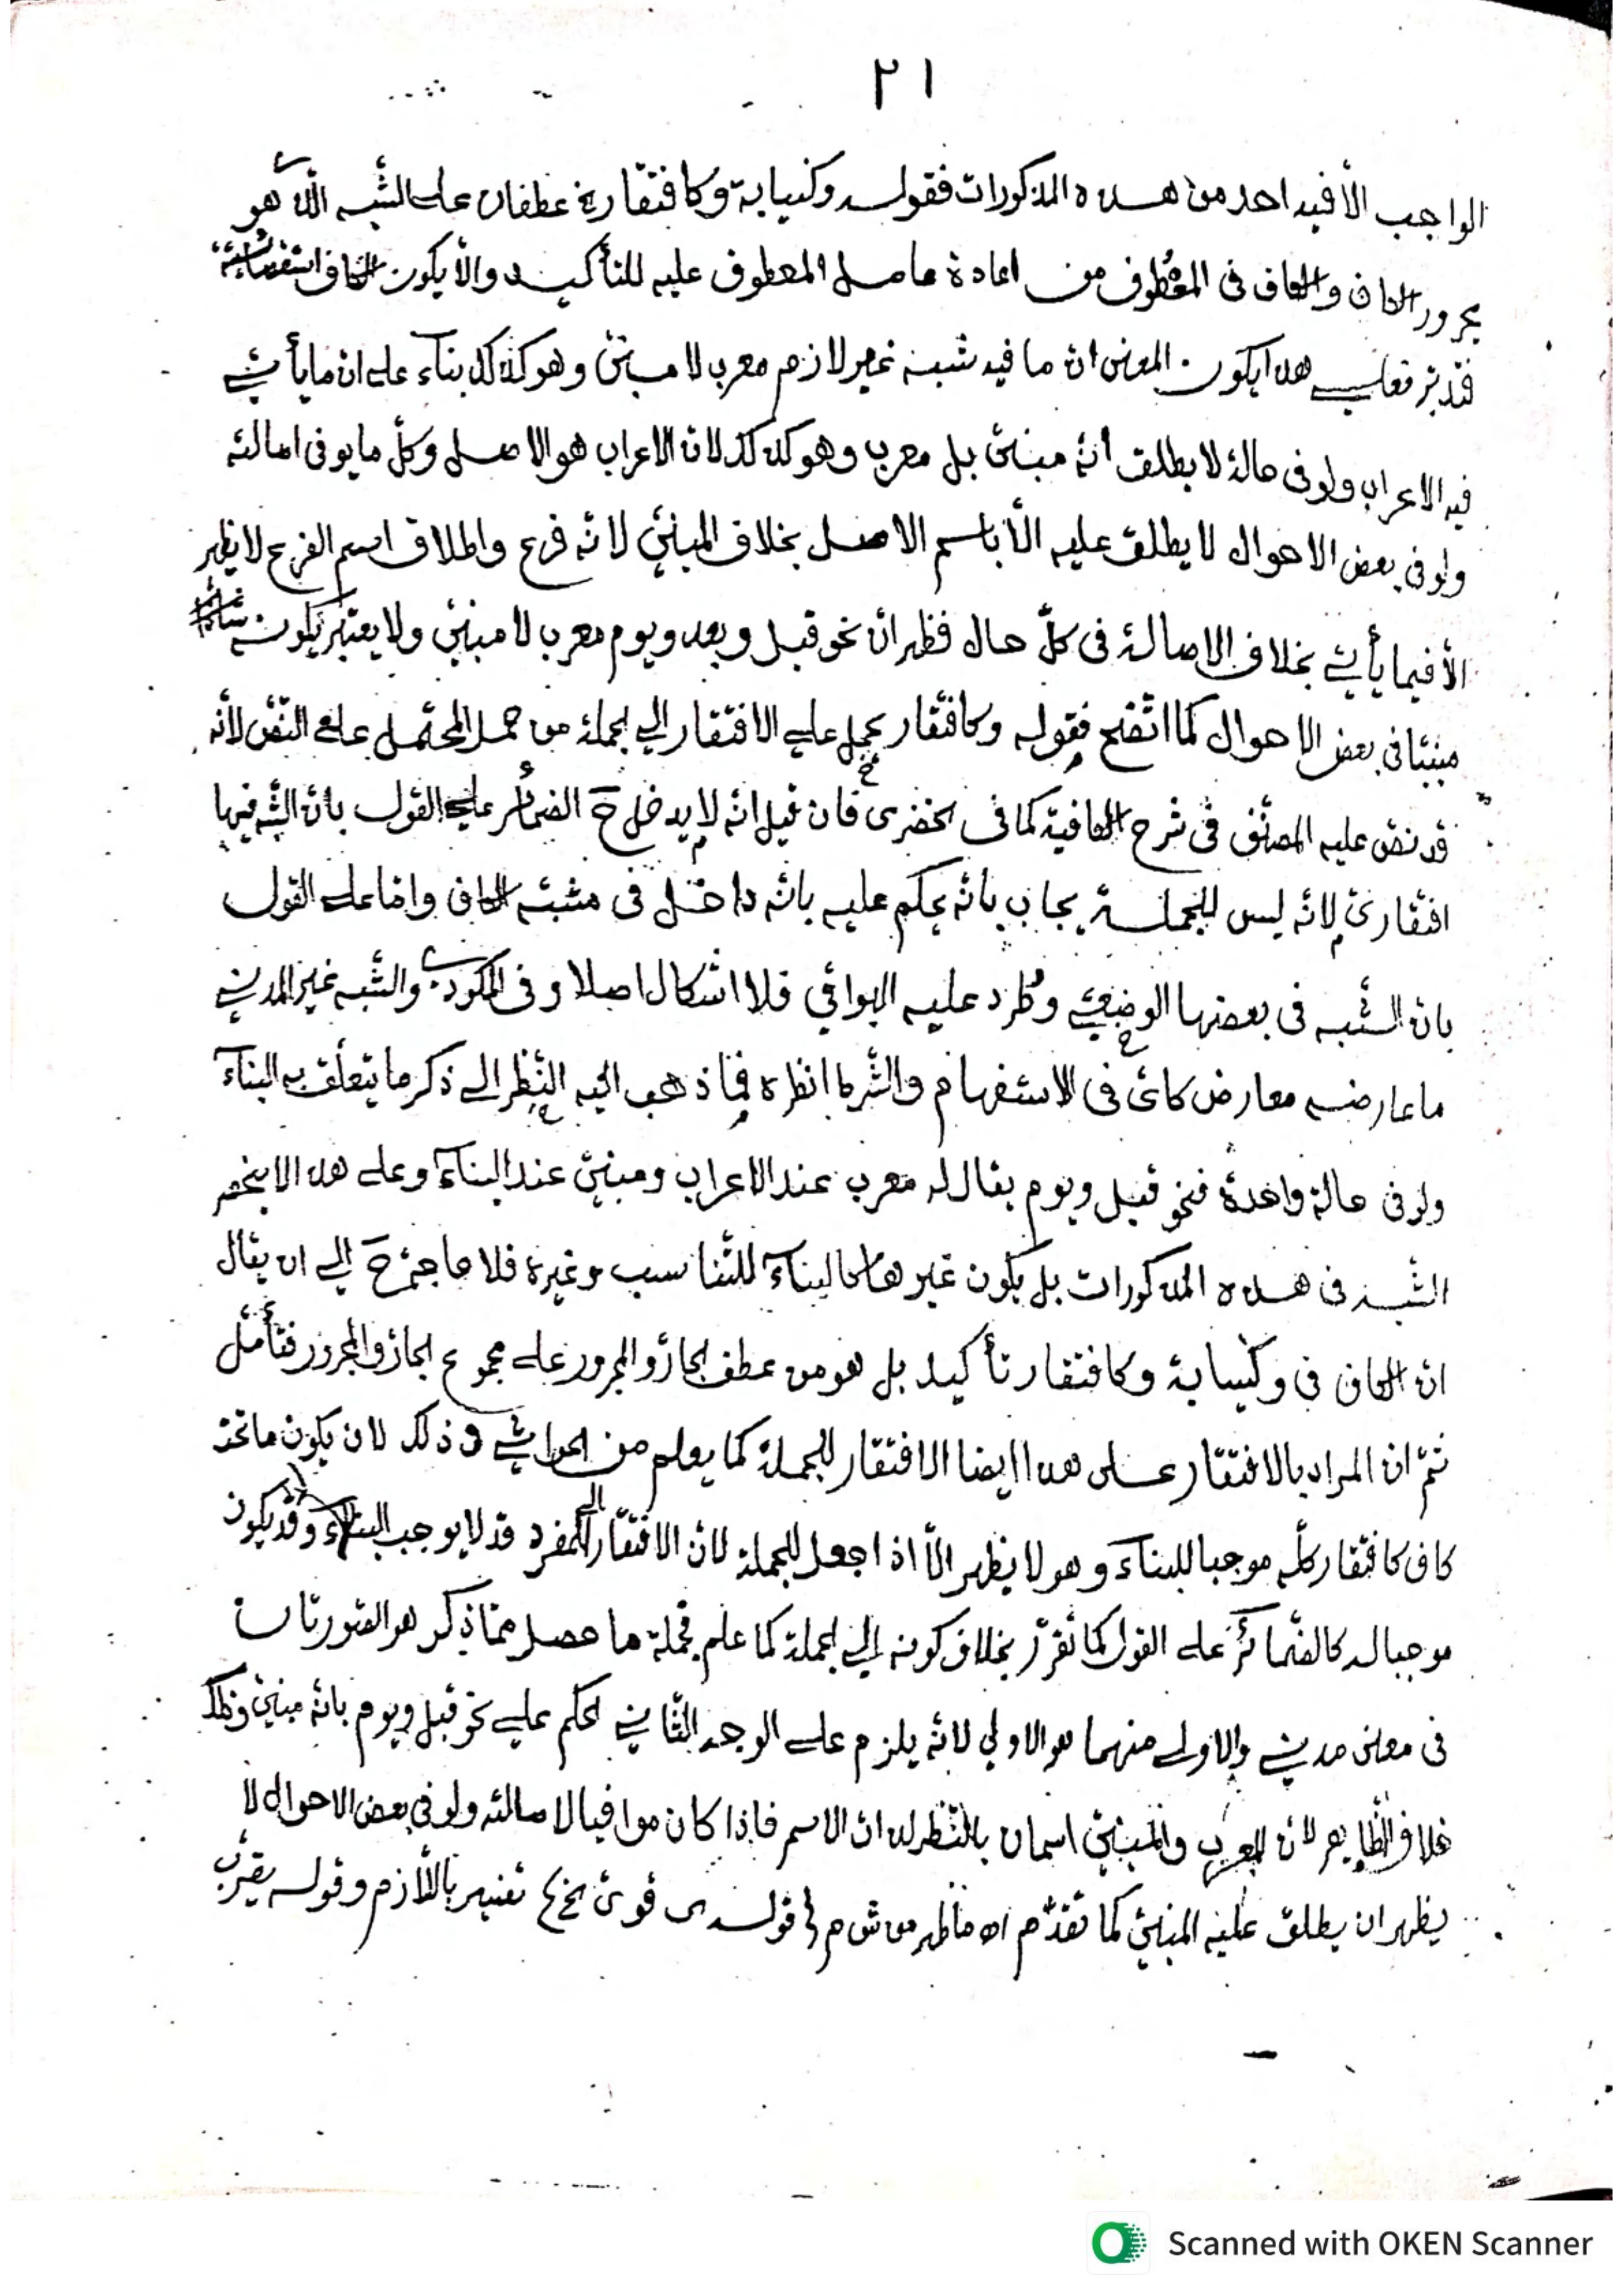 ٢١
الواجب الأفيد احد من هذه المذكورات فقوله وكنيابة وكافتقار عطفان على الشبه الذي هو
مجرور الكاف والكاف فى المعطوف من اعادة عامل المعطوف عليه للتأكيد والّا يكون الكاف
فتدبر فعلى هذا يكون المعنى ان ما فيه شبه غير لازم معرب لا مبنىّ وهو كذلك بناء على ان ما يأتى
فيه الاعراب ولو فى حالة لا يطلق أنّه مبنىّ بل معرب وهو كذلك لان الاعراب هو الاصل وكلّ ما يوفى اصالته
ولو فى بعض الاحوال لا يطلق عليه الّا باسم الاصل بخلاف المبنىّ لانّه فرع واطلاق اسم الفرع لا يظهر
الّا فيما يأتى بخلاف الاصالة فى كلّ حال فظهر انّ نحو قبل وبعد ويوم معرب لا مبنىّ ولا يعتبر بكون
مبنيّا فى بعض الاحوال كما اتّضح فقوله وكافتقار يحمل على الافتقار الى الجملة من حمل المحتمل على النّصّ لأنّه
قد نصّ عليه المصنّف فى شرح الكافية كما فى الخضرى فان قيل انّه لا يدخل ح الضمائر على القول بانّ الشّبه فيها
افتقارىّ لانّه ليس للجملة يجاب بأنّه يحكم عليه بانّه داخل فى مشبّه الكاف وامّا على القول
بانّ الشّبه فى بعضها الوضعىّ وطرد عليه البواقى فلا اشكال اصلا وفى المكودى والشّبه غير المدنى
ما عارضه معارض كاىّ فى الاستفهام والشّرط انظره فما ذهب اليه النّظر الى ذكر ما يتعلّق به البناء
ولو فى حالة واحدة فنحو قبل ويوم يقال له معرب عند الاعراب ومبنىّ عند البناء وعلى هذا لا ينحصر
الشّبه فى هذه المذكورات بل يكون غيرها كالبناء للتّناسب وغيره فلا حاجة ح الى ان يقال
انّ الكاف فى وكنيابة وكافتقار تأكيد بل هو من عطف الجارّ والمجرور على مجموع الجارّ والمجرور فتأمّل
ثمّ ان المراد بالافتقار على هذا ايضا الافتقار للجملة كما يعلم من الحواشى وذلك لان يكون ما تحت
كاف كافتقار كلّه موجبا للبناء وهو لا يظهر الّا اذا جعل للجملة لانّ الافتقار الى المفرد قد لا يوجب البناء وقد يكون
موجبا له كالضّمائر على القول كما تقرّر بخلاف كونه الى الجملة كما علم فجملة ما حصل ممّا ذكر هو الصّورتان
فى معنى مدنى والاولى منهما هو الاولى لانّه يلزم على الوجه الثّانى الحكم على نحو قبل ويوم بانّه مبنىّ وذلك
خلاف الظّاهر لانّ المعرب والمبنىّ اسمان بالنّظر لذات الاسم فاذا كان موافيا لاصالته ولو فى بعض الاحوال لا
يظهر ان يطلق عليه المبنىّ كما تقدّم اه ما ظهر من ش م قوله قوىّ تفسير باللّازم وقوله يقرّب
Scanned with OKEN Scanner